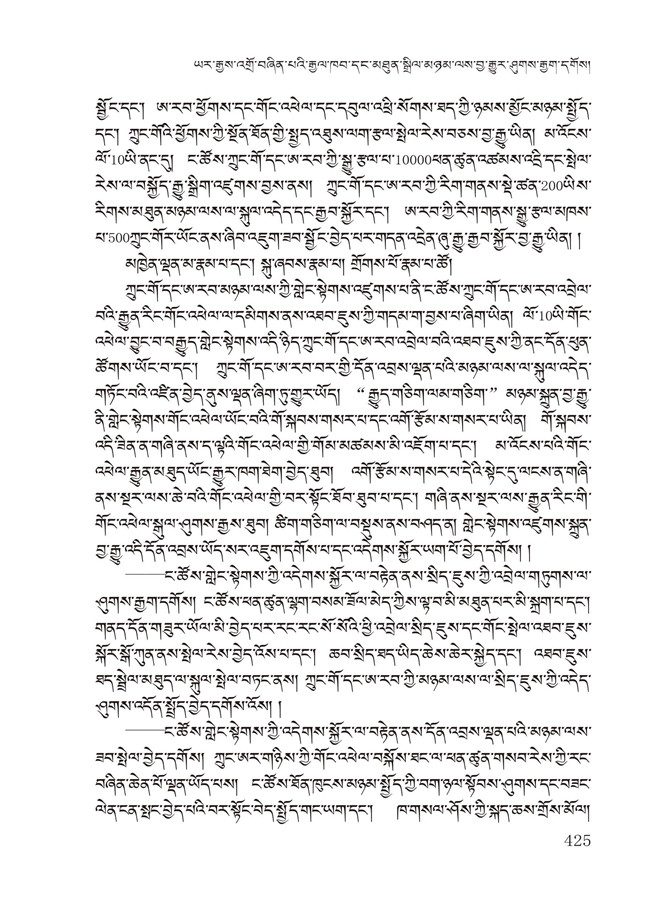 ཡར་རྒྱས་འགྲོ་བཞིན་པའི་རྒྱལ་ཁབ་དང་མཐུན་སྒྲིལ་མཉམ་ལས་བྱ་རྒྱུར་ཤུགས་རྒྱག་དགོས།
སྦྱོང་དང་། ཨ་རབ་ཕྱོགས་དང་གོང་འཕེལ་དང་དབུལ་འཕྲི་སོགས་ཐད་ཀྱི་ཉམས་མྱོང་མཉམ་སྤྱོད་
དང་། ཀྲུང་གོའི་ཕྱོགས་ཀྱི་སྔོན་ཐོན་གྱི་སྤྱད་འཐུས་ལག་རྩལ་སྤེལ་རེས་བཅས་བྱ་རྒྱུ་ཡིན། མ་འོངས་
ལོ་10ཡི་ནང་དུ། ང་ཚོས་ཀྲུང་གོ་དང་ཨ་རབ་ཀྱི་སྒྱུ་རྩལ་པ་10000ཕན་ཚུན་འཚམས་འདྲི་དང་སྤེལ་
རེས་ལ་བསྐྱོད་རྒྱུ་སྒྲིག་འཛུགས་བྱས་ནས། ཀྲུང་གོ་དང་ཨ་རབ་ཀྱི་རིག་གནས་སྡེ་ཚན་200ཡིས་
རིགས་མཐུན་མཉམ་ལས་ལ་སྐུལ་འདེད་དང་རྒྱབ་སྐྱོར་དང་། ཨ་རབ་ཀྱི་རིག་གནས་སྒྱུ་རྩལ་མཁས་
པ་500ཀྲུང་གོར་ཡོང་ནས་ཞིབ་འཇུག་ཟབ་སྦྱོང་བྱེད་པར་གདན་འདྲེན་ཞུ་རྒྱུ་རྒྱབ་སྐྱོར་བྱ་རྒྱུ་ཡིན། །
མཁྱེན་ལྡན་མ་རྣམ་པ་དང་། སྐུ་ཞབས་རྣམ་པ། གྲོགས་པོ་རྣམ་པ་ཚོ།
ཀྲུང་གོ་དང་ཨ་རབ་མཉམ་ལས་ཀྱི་གླེང་སྟེགས་འཛུགས་པ་ནི་ང་ཚོས་ཀྲུང་གོ་དང་ཨ་རབ་འབྲེལ་
བའི་རྒྱུན་རིང་གོང་འཕེལ་ལ་དམིགས་ནས་འཐབ་ཇུས་ཀྱི་གདམ་ག་བྱས་པ་ཞིག་ཡིན། ལོ་10ཡི་གོང་
འཕེལ་བྱུང་བ་བརྒྱུད་གླེང་སྟེགས་འདི་ཉིད་ཀྲུང་གོ་དང་ཨ་རབ་འབྲེལ་བའི་འཐབ་ཇུས་ཀྱི་ནང་དོན་ཕུན་
ཚོགས་ཡོང་བ་དང་། ཀྲུང་གོ་དང་ཨ་རབ་བར་གྱི་དོན་འབྲས་ལྡན་པའི་མཉམ་ལས་ལ་སྐུལ་འདེད་
གཏོང་བའི་འཛིན་བྱེད་ནུས་ལྡན་ཞིག་ཏུ་གྱུར་ཡོད། “རྒྱུད་གཅིག་ལམ་གཅིག” མཉམ་སྐྲུན་བྱ་རྒྱུ་
ནི་གླེང་སྟེགས་གོང་འཕེལ་ཡོང་བའི་གོ་སྐབས་གསར་པ་དང་འགོ་རྩོམ་ས་གསར་པ་ཡིན། གོ་སྐབས་
འདི་ཟིན་ན་གཞི་ནས་ད་ལྟའི་གོང་འཕེལ་གྱི་གོམ་མཚམས་མི་འཇོག་པ་དང་། མ་འོངས་པའི་གོང་
འཕེལ་རྒྱུན་མཐུད་ཡོང་རྒྱུར་ཁག་ཐེག་བྱེད་ཐུབ། འགོ་རྩོམ་ས་གསར་པ་དེའི་སྟེང་དུ་ལངས་ན་གཞི་
ནས་སྔར་ལས་ཆེ་བའི་གོང་འཕེལ་གྱི་བར་སྟོང་ཐོབ་ཐུབ་པ་དང་། གཞི་ནས་སྔར་ལས་རྒྱུན་རིང་གི་
གོང་འཕེལ་སྐུལ་ཤུགས་རྒྱས་ཐུབ། ཚིག་གཅིག་ལ་བསྡུས་ནས་བཤད་ན། གླེང་སྟེགས་འཛུགས་སྐྲུན་
བྱ་རྒྱུ་འདི་དོན་འབྲས་ཡོད་སར་འཇུག་དགོས་པ་དང་འདེགས་སྐྱོར་ཡག་པོ་བྱེད་དགོས། །
——ང་ཚོས་གླེང་སྟེགས་ཀྱི་འདེགས་སྐྱོར་ལ་བརྟེན་ནས་སྲིད་ཇུས་ཀྱི་འབྲེལ་གཏུགས་ལ་
ཤུགས་རྒྱག་དགོས། ང་ཚོས་ཕན་ཚུན་ལྷག་བསམ་ཟོལ་མེད་ཀྱིས་ལྟ་བ་མི་མཐུན་པར་མི་སྐྲག་པ་དང་།
གནད་དོན་གཟུར་ཡོལ་མི་བྱེད་པར་རང་རང་སོ་སོའི་ཕྱི་འབྲེལ་སྲིད་ཇུས་དང་གོང་སྤེལ་འཐབ་ཇུས་
སྐོར་སྒོ་ཀུན་ནས་སྤེལ་རེས་བྱེད་འོས་པ་དང་། ཆབ་སྲིད་ཐད་ཡིད་ཆེས་ཆེར་སྐྱེད་དང་། འཐབ་ཇུས་
ཐད་སྦྲེལ་མཐུད་ལ་སྐུལ་སྤེལ་བཏང་ནས། ཀྲུང་གོ་དང་ཨ་རབ་ཀྱི་མཉམ་ལས་ལ་སྲིད་ཇུས་ཀྱི་འདེད་
ཤུགས་འདོན་སྤྲོད་བྱེད་དགོས་འོས། །
——ང་ཚོས་གླེང་སྟེགས་ཀྱི་འདེགས་སྐྱོར་ལ་བརྟེན་ནས་དོན་འབྲས་ལྡན་པའི་མཉམ་ལས་
ཟབ་སྤེལ་བྱེད་དགོས། ཀྲུང་ཨར་གཉིས་ཀྱི་གོང་འཕེལ་བསྐྲོས་ཐང་ལ་ཕན་ཚུན་གསབ་རེས་ཀྱི་རང་
བཞིན་ཆེན་པོ་ལྡན་ཡོད་པས། ང་ཚོས་ཐོན་ཁུངས་མཉམ་སྤྱོད་ཀྱི་བག་ཉལ་སྟོབས་ཤུགས་དང་བཟང་
ལེན་ངན་སྤང་བྱེད་པའི་བར་སྟོང་བེད་སྤྱོད་གང་ཡག་དང་། ཁ་གསལ་པོས་ཀྱི་སྐད་ཆས་གྲོས་མོལ།
425